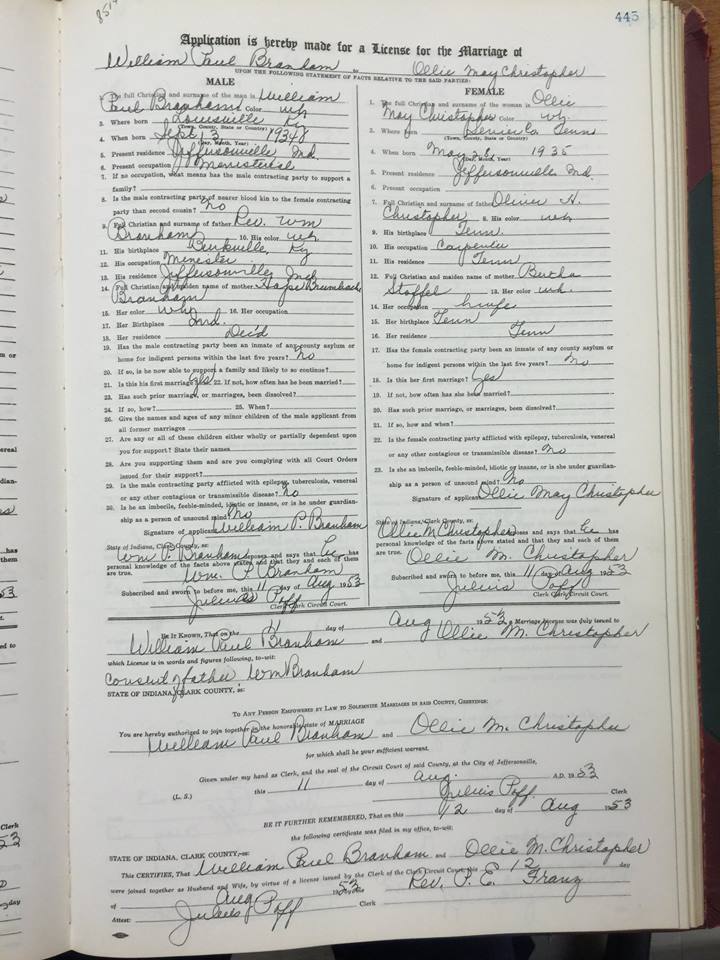 8519
445
Application is hereby made for a License for the Marriage of
William Paul Branham to Ollie May Christopher
UPON THE FOLLOWING STATEMENT OF FACTS RELATIVE TO THE SAID PARTIES:
MALE
1. The full Christian and surname of the man is William
Paul Branham Color wh
2. Where born Louisville Ky
(Town, County, State or Country)
4. When born Sept 13
(Day, Month, Year)
5. Present residence Jeffersonville Ind.
6. Present occupation Menisterial
7. If no occupation, what means has the male contracting party to support a
family?
8. Is the male contracting party of nearer blood kin to the female contracting
party than second cousin? No
9. Full Christian and surname of father Rev. Wm
Branham 10. His color wh
11. His birthplace Burksville, Ky
12. His occupation Menester
13. His residence Jeffersonville Ind
14. Full Christian and maiden name of mother Hope Brumbach
Branham
15. Her color wh 16. Her occupation
17. Her Birthplace Ind.
18. Her residence Dec'd
19. Has the male contracting party been an inmate of any county asylum or
home for indigent persons within the last five years? No
20. If so, is he now able to support a family and likely to so continue?
21. Is this his first marriage? Yes 22. If not, how often has he been married?
23. Has such prior marriage, or marriages, been dissolved?
24. If so, how? 25. When?
26. Give the names and ages of any minor children of the male applicant from
all former marriages
27. Are any or all of these children either wholly or partially dependent upon
you for support? State their names
28. Are you supporting them and are you complying with all Court Orders
issued for their support?
29. Is the male contracting party afflicted with epilepsy, tuberculosis, venereal
or any other contagious or transmissible disease? No
30. Is he an imbecile, feeble-minded, idiotic or insane, or is he under guardian-
ship as a person of unsound mind? No
Signature of applicant William P. Branham
State of Indiana, Clark County, ss:
Wm P. Branham deposes and says that he has
personal knowledge of the facts above stated and that they and each of them
are true. Wm. P. Branham
Subscribed and sworn to before me, this 11 day of Aug 1953
Julius Poff Clerk Clark Circuit Court.
FEMALE
1. The full Christian and surname of the woman is Ollie
May Christopher Color wh.
3. Where born Sevier Co Tenn
(Town, County, State or Country)
4. When born May 28 1935
(Day, Month, Year)
5. Present residence Jeffersonville Ind.
6. Present occupation
7. Full Christian and surname of father Oliver H.
Christopher 8. His color wh
9. His birthplace Tenn.
10. His occupation Carpenter
11. His residence Tenn
12. Full Christian and maiden name of mother Bertha
Stoffel 13. Her color wh.
14. Her occupation hwife
15. Her birthplace Tenn
16. Her residence Tenn
17. Has the female contracting party been an inmate of any county asylum or
home for indigent persons within the last five years? No
18. Is this her first marriage? Yes
19. If not, how often has she been married?
20. Has such prior marriage, or marriages, been dissolved?
21. If so, how and when?
22. Is the female contracting party afflicted with epilepsy, tuberculosis, venereal
or any other contagious or transmissible disease? No
23. Is she an imbecile, feeble-minded, idiotic or insane, or is she under guardian-
ship as a person of unsound mind? No
Signature of applicant Ollie May Christopher
State of Indiana, Clark County, ss:
Ollie M Christopher deposes and says that he has
personal knowledge of the facts above stated and that they and each of them
are true. Ollie M. Christopher
Subscribed and sworn to before me, this 11 day of Aug 1953
Julius Poff Clerk Clark Circuit Court.
BE IT KNOWN, That on the 11 day of Aug 1953 a Marriage license was duly issued to
William Paul Branham and Ollie M. Christopher
which License is in words and figures following, to-wit:
Consent of father Wm Branham
STATE OF INDIANA, CLARK COUNTY, ss:
TO ANY PERSON EMPOWERED BY LAW TO SOLEMNIZE MARRIAGES IN SAID COUNTY, GREETINGS:
You are hereby authorized to join together in the honorable state of MARRIAGE
William Paul Branham and Ollie M. Christopher
for which shall be your sufficient warrant.
Given under my hand as Clerk, and the seal of the Circuit Court of said County, at the City of Jeffersonville,
(L. S.) this 11 day of Aug. A.D. 1953
Julius Poff Clerk
BE IT FURTHER REMEMBERED, That on this 12 day of Aug 1953
the following certificate was filed in my office, to-wit:
STATE OF INDIANA, CLARK COUNTY, ss:
This CERTIFIES, That William Paul Branham and Ollie M. Christopher
were joined together as Husband and Wife, by virtue of a license issued by the Clerk of the Clark Circuit Court, this 12 day
of Aug 1953 by me Rev. P. E. Franz
Attest: Julius Poff Clerk